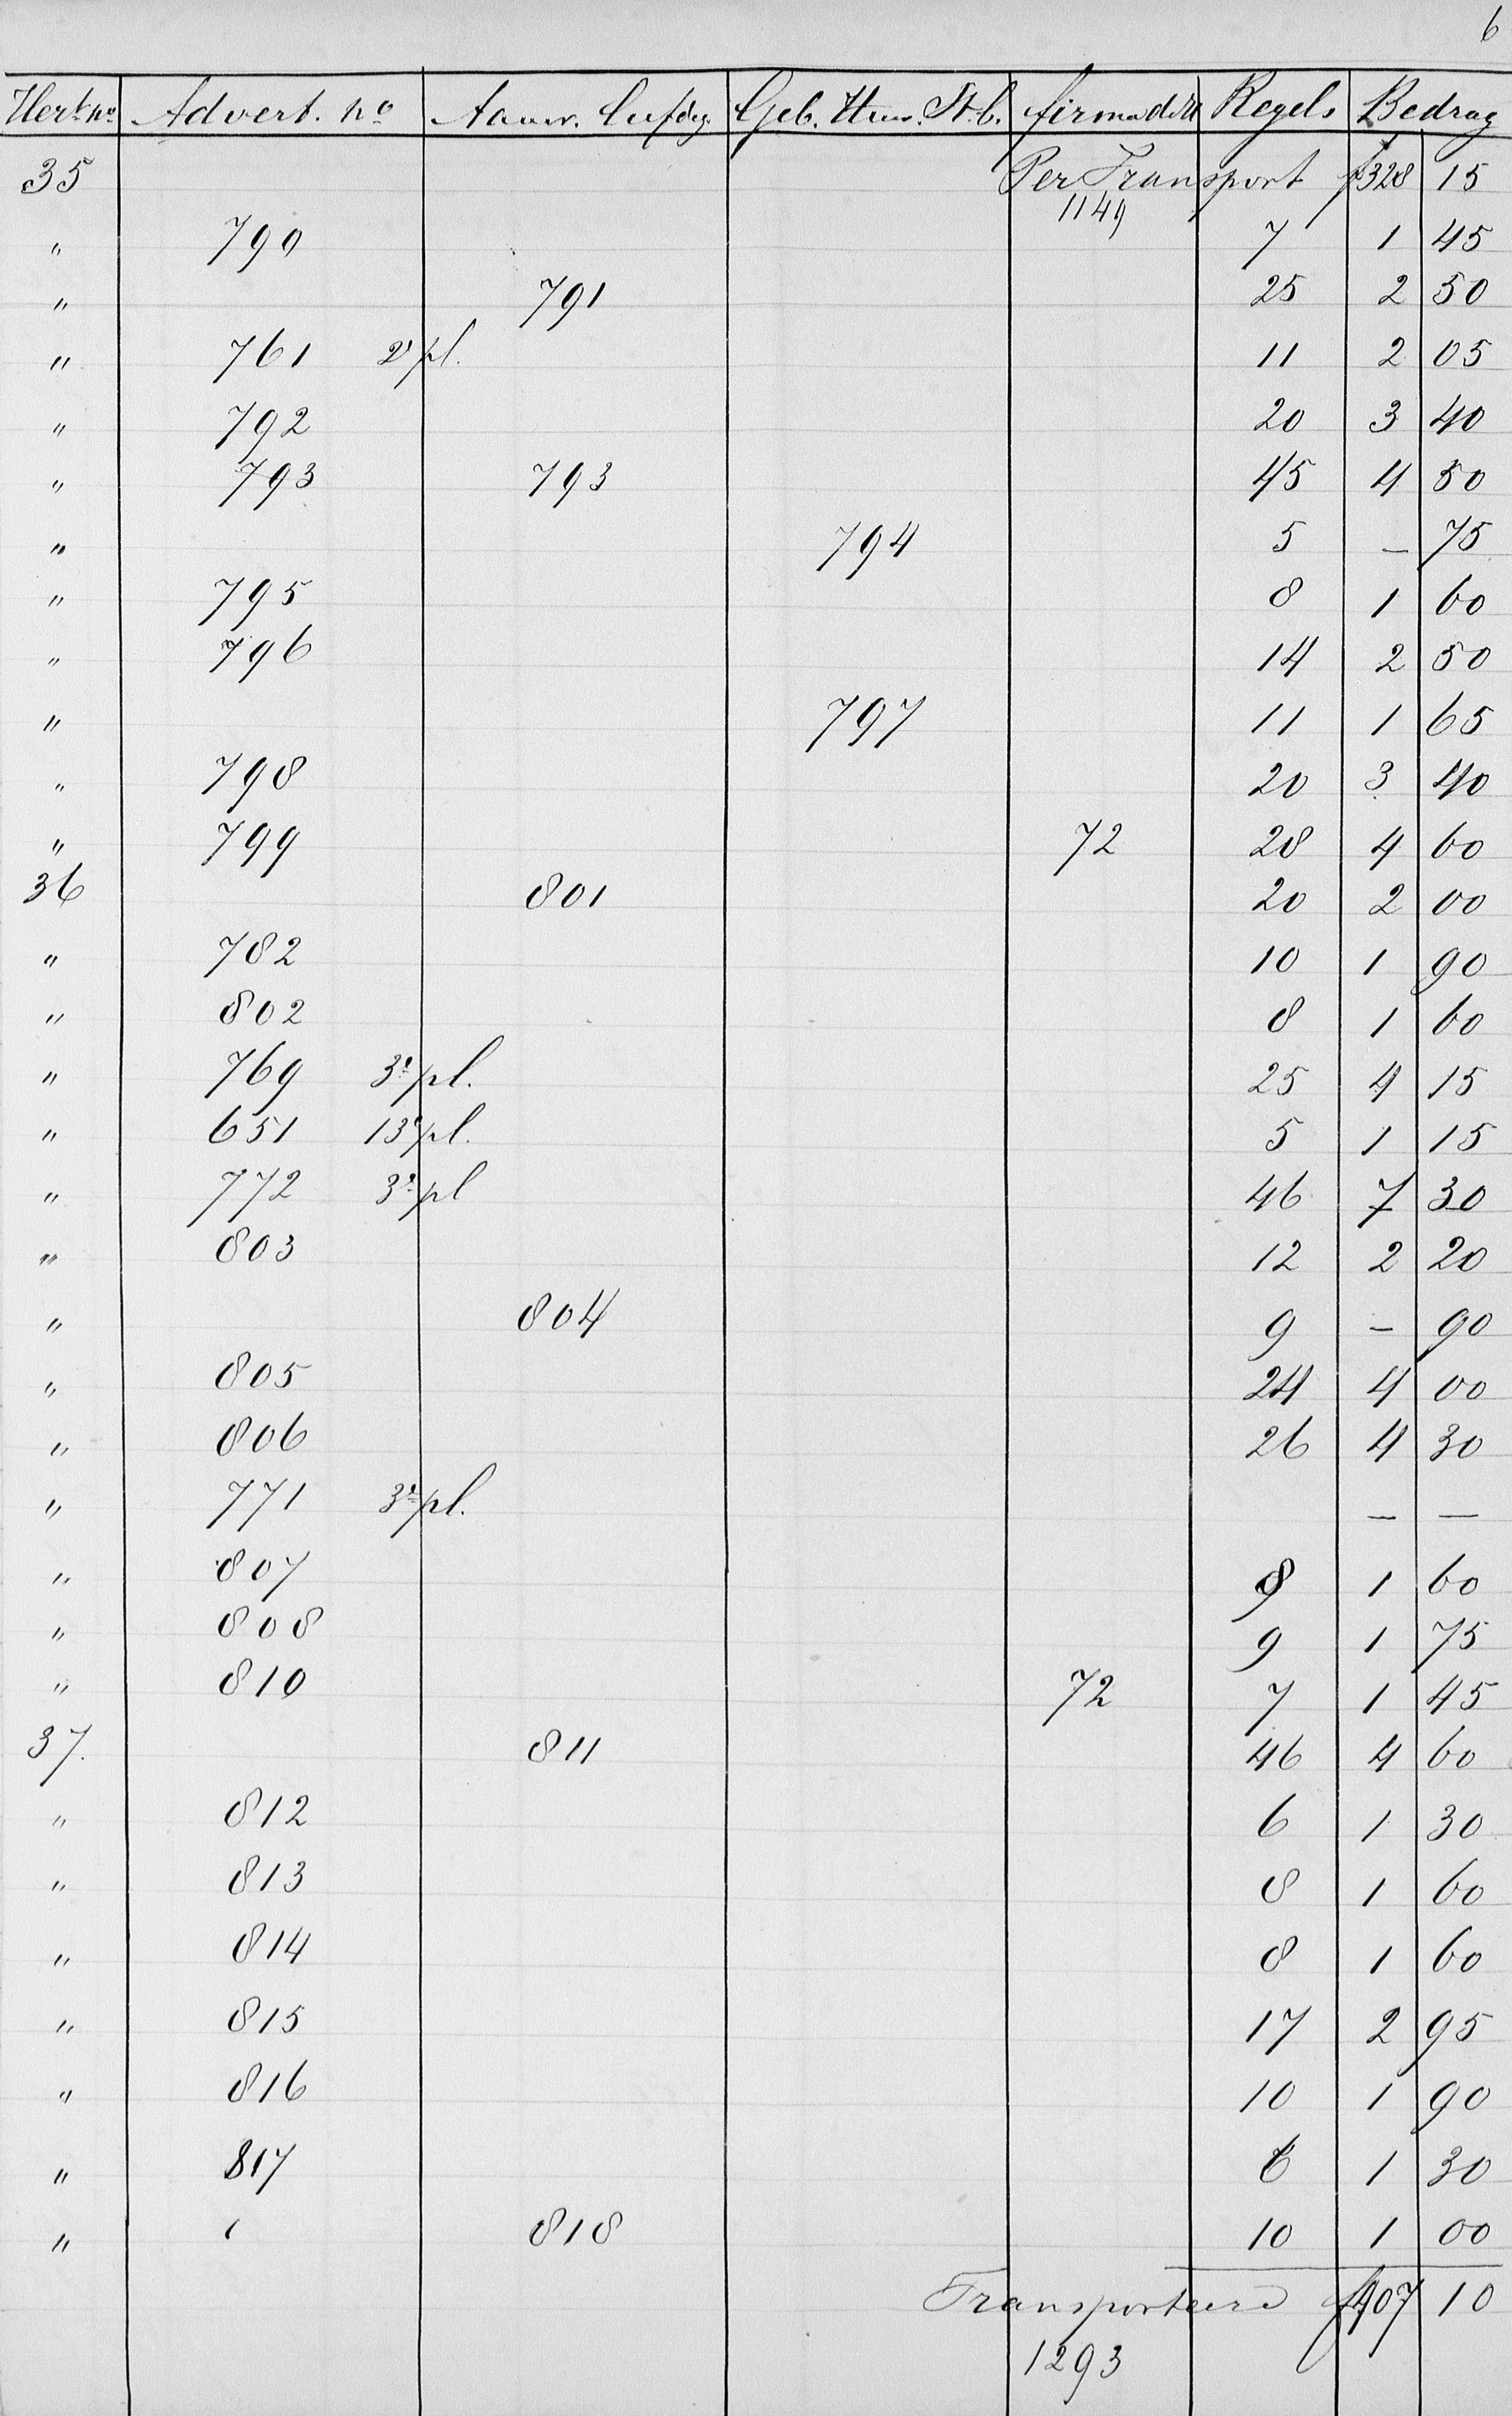 6
Hert. no. Advert. no Aanw. Geb. Huw. St. b. firma Regels Bedrag
35 Per Transport f 328 15
1149
" 790 7 1 45
" 791 25 2 50
" 761 2e pl. 11 2 05
" 792 20 3 40
" 793 793 45 4 50
" 794 5 — 75
" 795 8 1 60
" 796 14 2 50
" 797 11 1 65
" 798 20 3 40
" 799 72 28 4 60
36 801 20 2 00
" 782 10 1 90
" 802 8 1 60
" 769 3e pl. 25 4 15
" 651 13e pl. 5 1 15
" 772 3e pl 46 7 30
" 803 12 2 20
" 804 9 — 90
" 805 24 4 00
" 806 26 4 30
" 771 3e pl. — —
" 807 8 1 60
" 808 9 1 75
" 810 72 7 1 45
37. 811 46 4 60
" 812 6 1 30
" 813 8 1 60
" 814 8 1 60
" 815 17 2 95
" 816 10 1 90
" 817 6 1 30
" 818 10 1 00
Transporteere f 407 10
1293